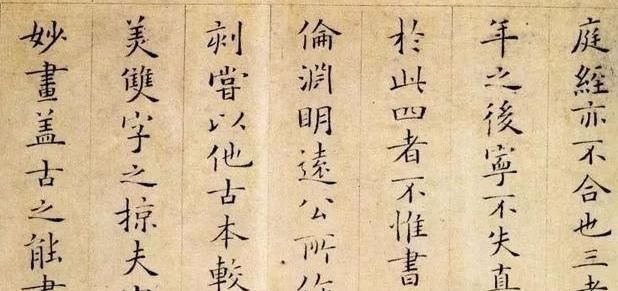 庭經亦不合也三者
年之後寧不失真
於此四者不惟書
倫淵明遠公所作
刻嘗以他古本較
美雙字之掠夫
妙畫蓋古之能書